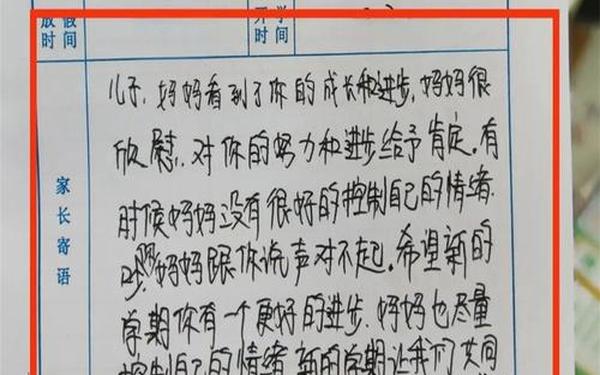 放假 开学
时间 时间
家长寄语
儿子,妈妈看到了你的成长和进步,妈妈很
欣慰,对你的努力和进步给予肯定。有
时候妈妈没有很好的控制自己的情绪.
妈妈跟你说声对不起。希望新的
学期你有一个更好的进步.妈妈也尽量
控制自己的情绪.新的学期让我们共同